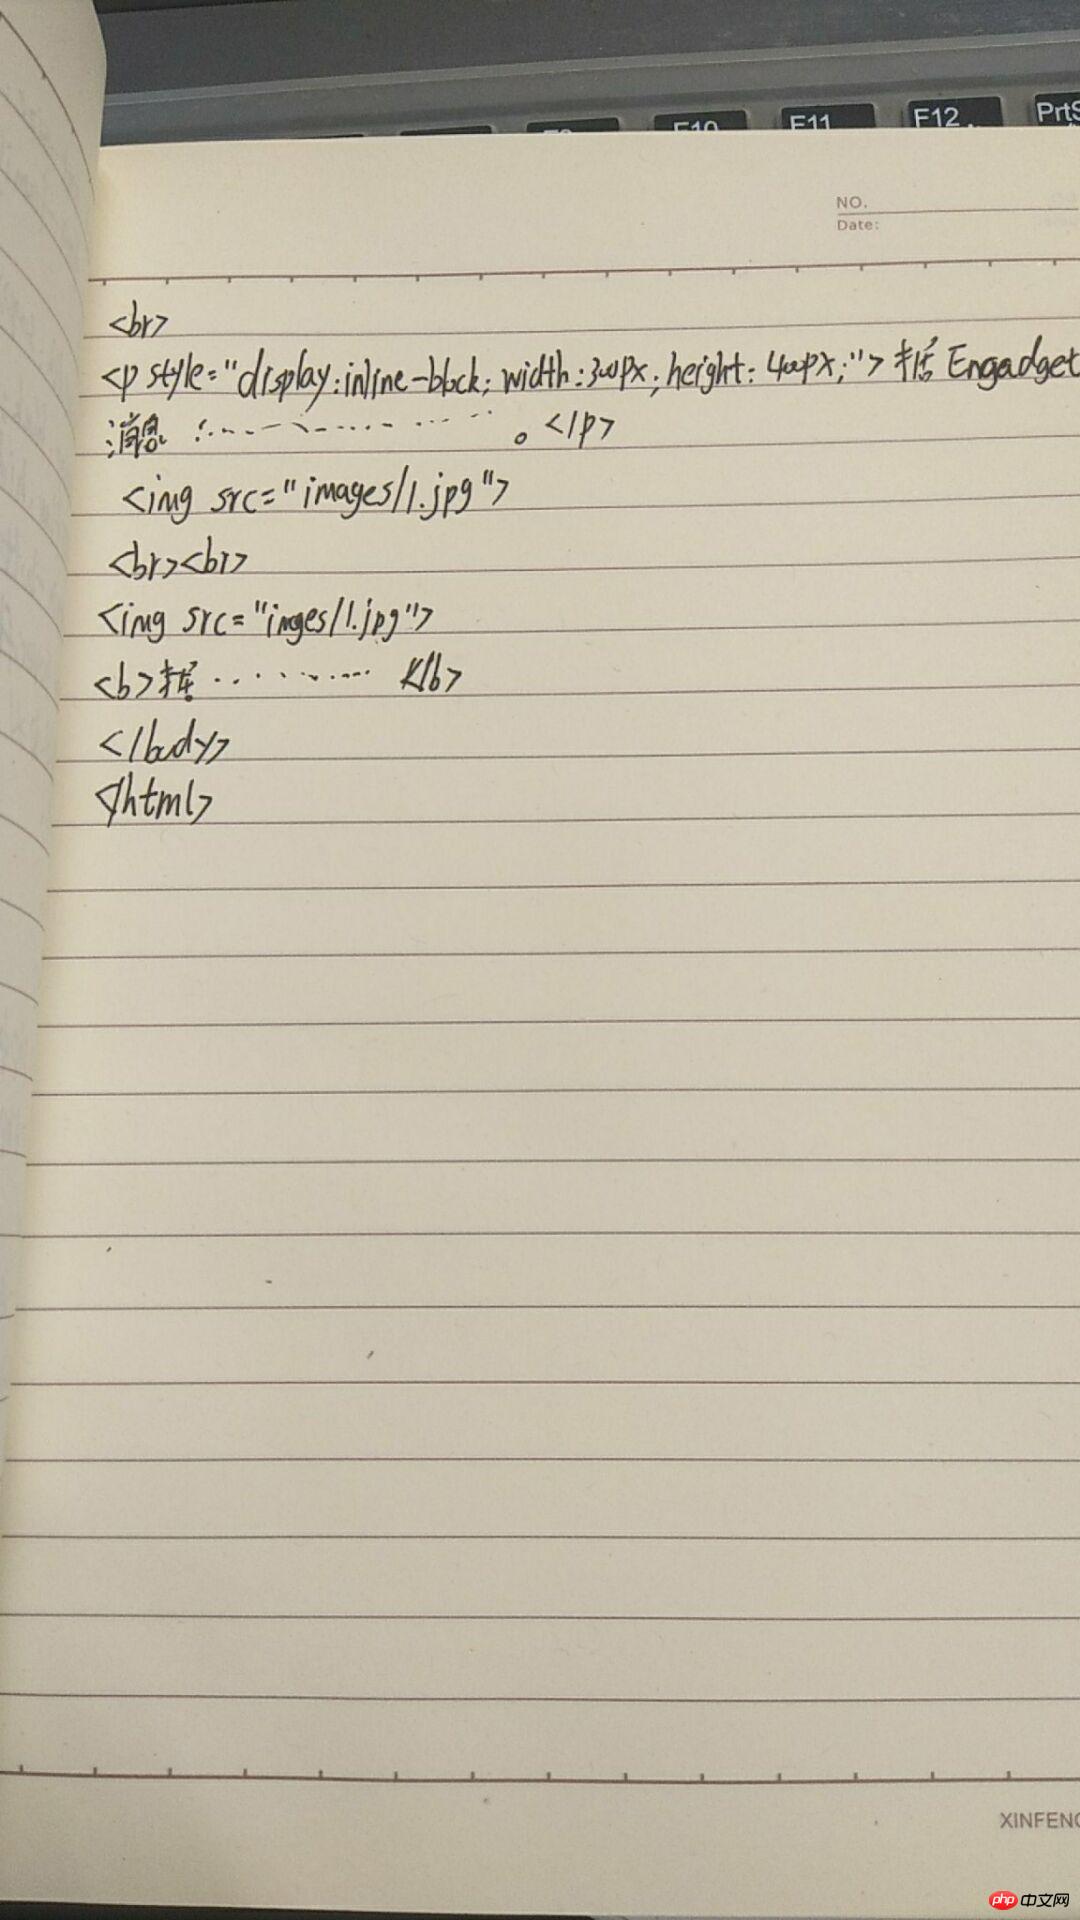 F10 F11 F12 PrtS
NO.
Date:
<br>
<p style="display:inline-block; width:300px; height:400px;"> Engadget
消息 ……………。</p>
<img src="images/1.jpg">
<br><br>
<img src="imges/1.jpg">
<b> ………… </b>
</body>
</html>
XINFENG
php 中文网